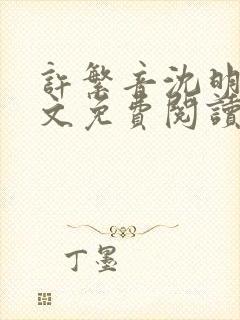 許繁音沈明
文免費閱讀
丁墨